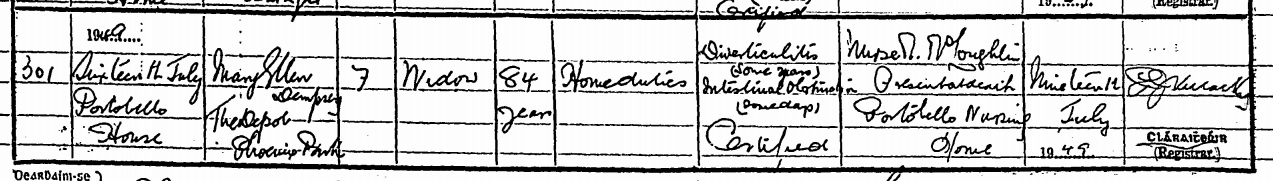 Certified
(Registrar.)
1949
301 Sixteenth July Portobello House
Mary Ellen Dempsey The Depot Phoenix Park
F
Widow
84 Years
Home duties
Diverticulitis (some years) Intestinal Obstruction (some days) Certified
Nurse M. McLoughlin Present at death Portobello Nursing Home
Nineteenth July 1949
CLÁRAITHEOIR (Registrar.)
Dearbaim-se